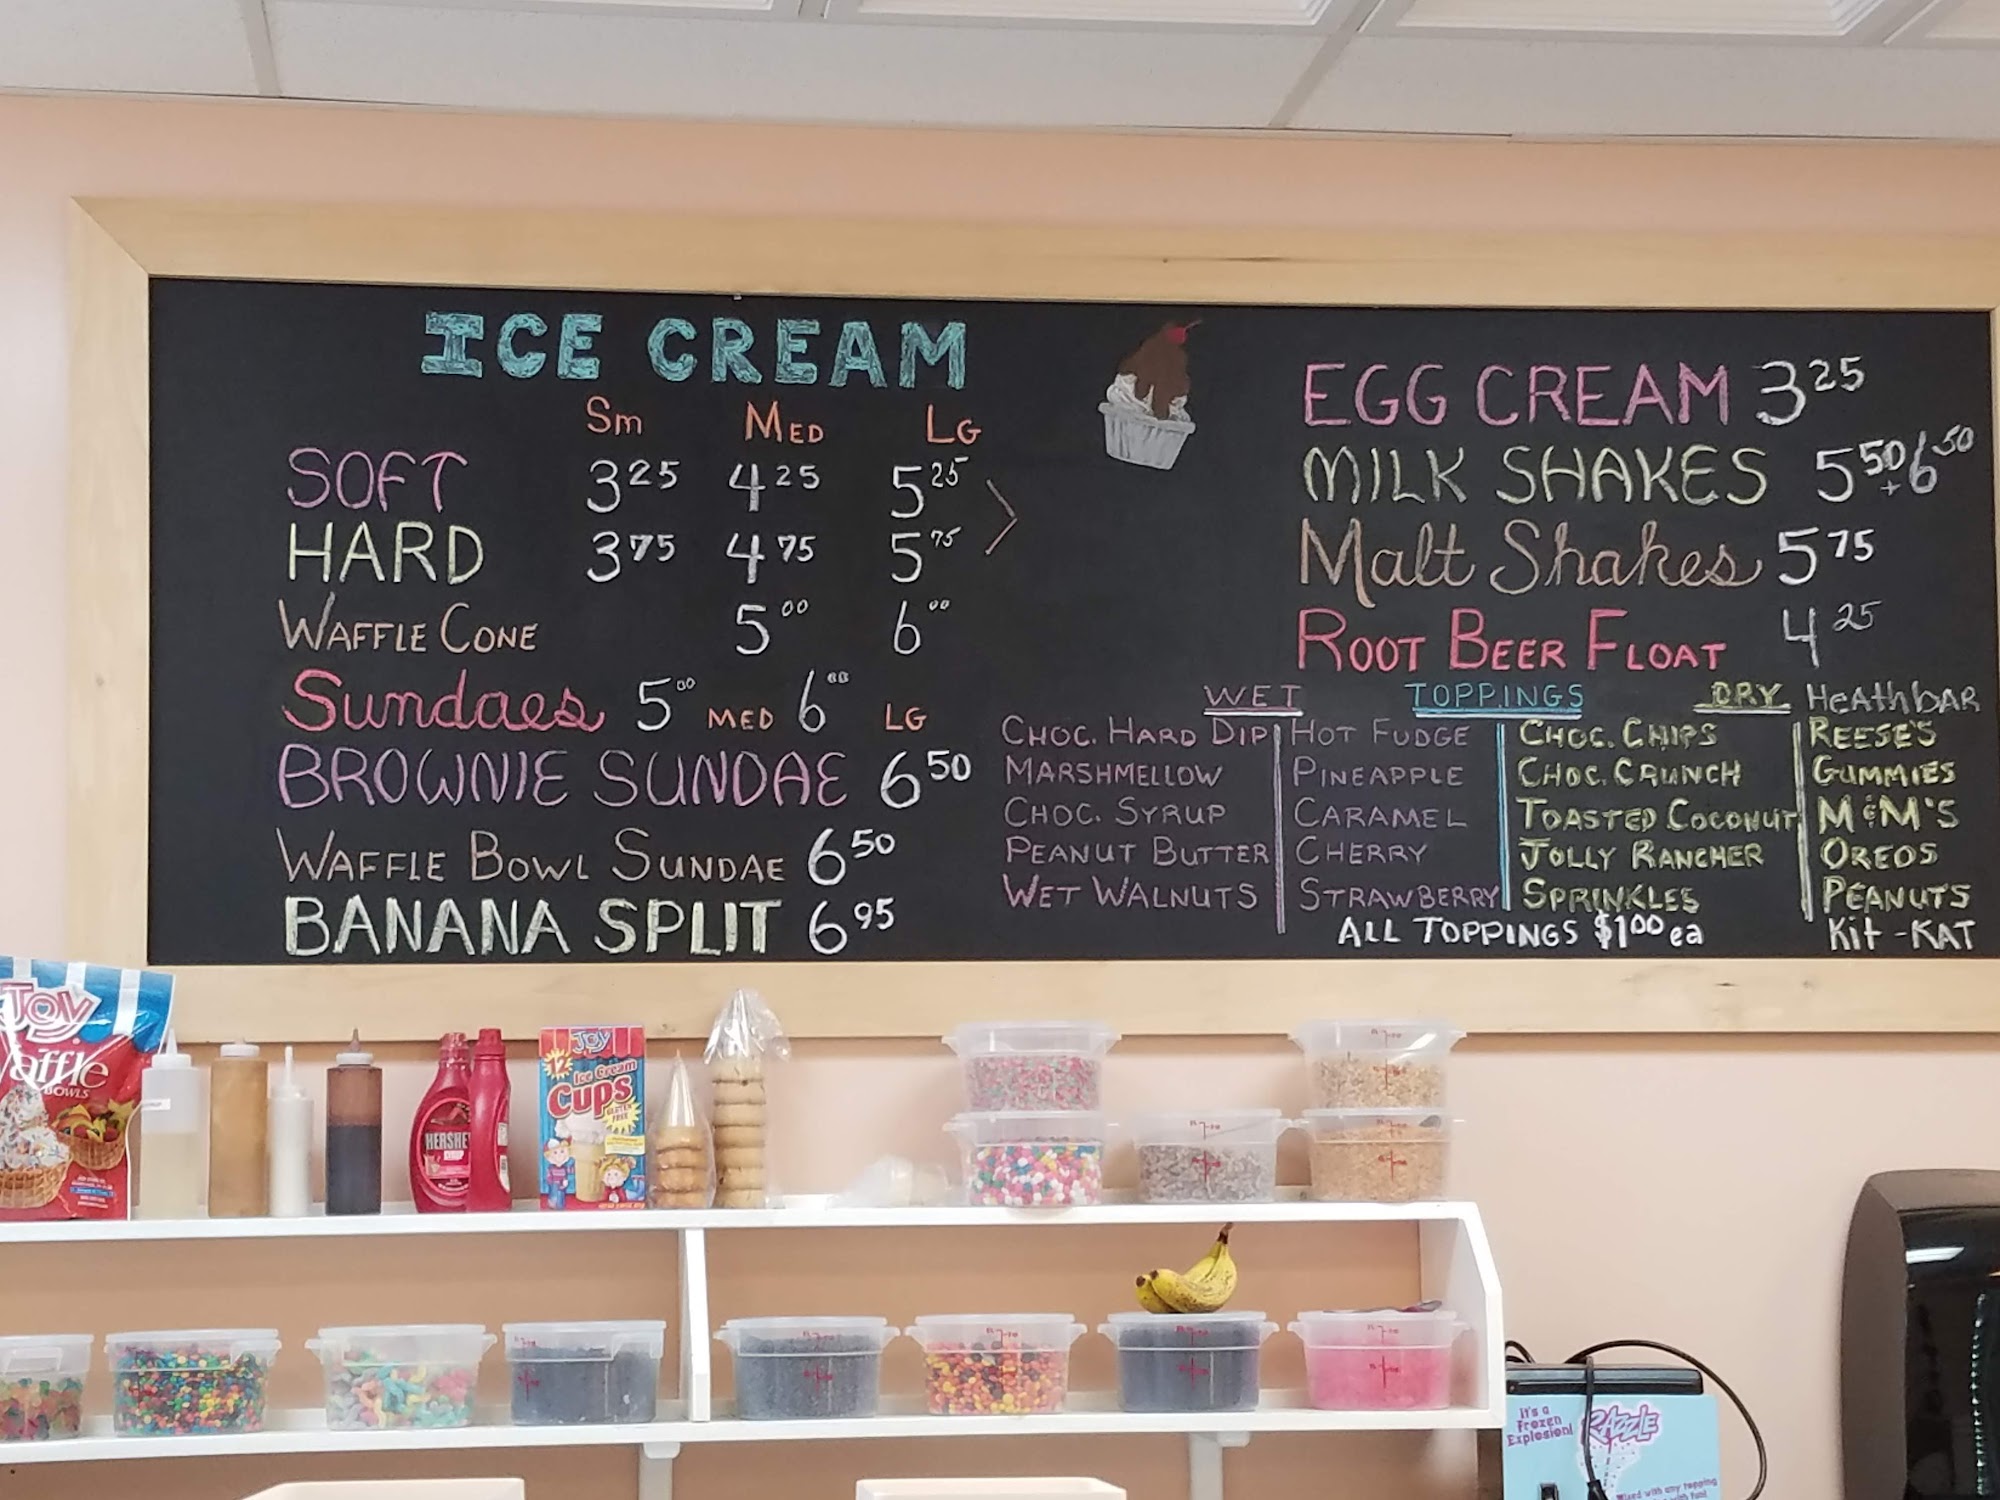 ICE CREAM
Sm MED LG
SOFT 3 25 4 25 5 25
HARD 3 75 4 75 5 75
WAFFLE CONE 5 00 6 00
Sundaes 5 00 MED 6 00 LG
BROWNIE SUNDAE 6 50
WAFFLE BOWL SUNDAE 6 50
BANANA SPLIT 6 95
EGG CREAM 3 25
MILK SHAKES 5 50 + 6 50
Malt Shakes 5 75
ROOT BEER FLOAT 4 25
WET TOPPINGS DRY HeatHbAR
CHOC. HARD DIP HOT FUDGE CHOC. CHIPS REESE'S
MARSHMELLOW PINEAPPLE CHOC. CRUNCH GUMMIES
CHOC. SYRUP CARAMEL TOASTED COCONUT M&M'S
PEANUT BUTTER CHERRY JOLLY RANCHER OREOS
WET WALNUTS STRAWBERRY SPRINKLES PEANUTS
ALL TOPPINGS $1 00 ea Kit-KAT
JOY
Waffle
BOWLS
HERSHEY
SYRUP
JOY
12
Ice Cream
Cups
GLUTEN
FREE
It's a
Frozen
Explosion!
RAZZLE
Mixed with any topping